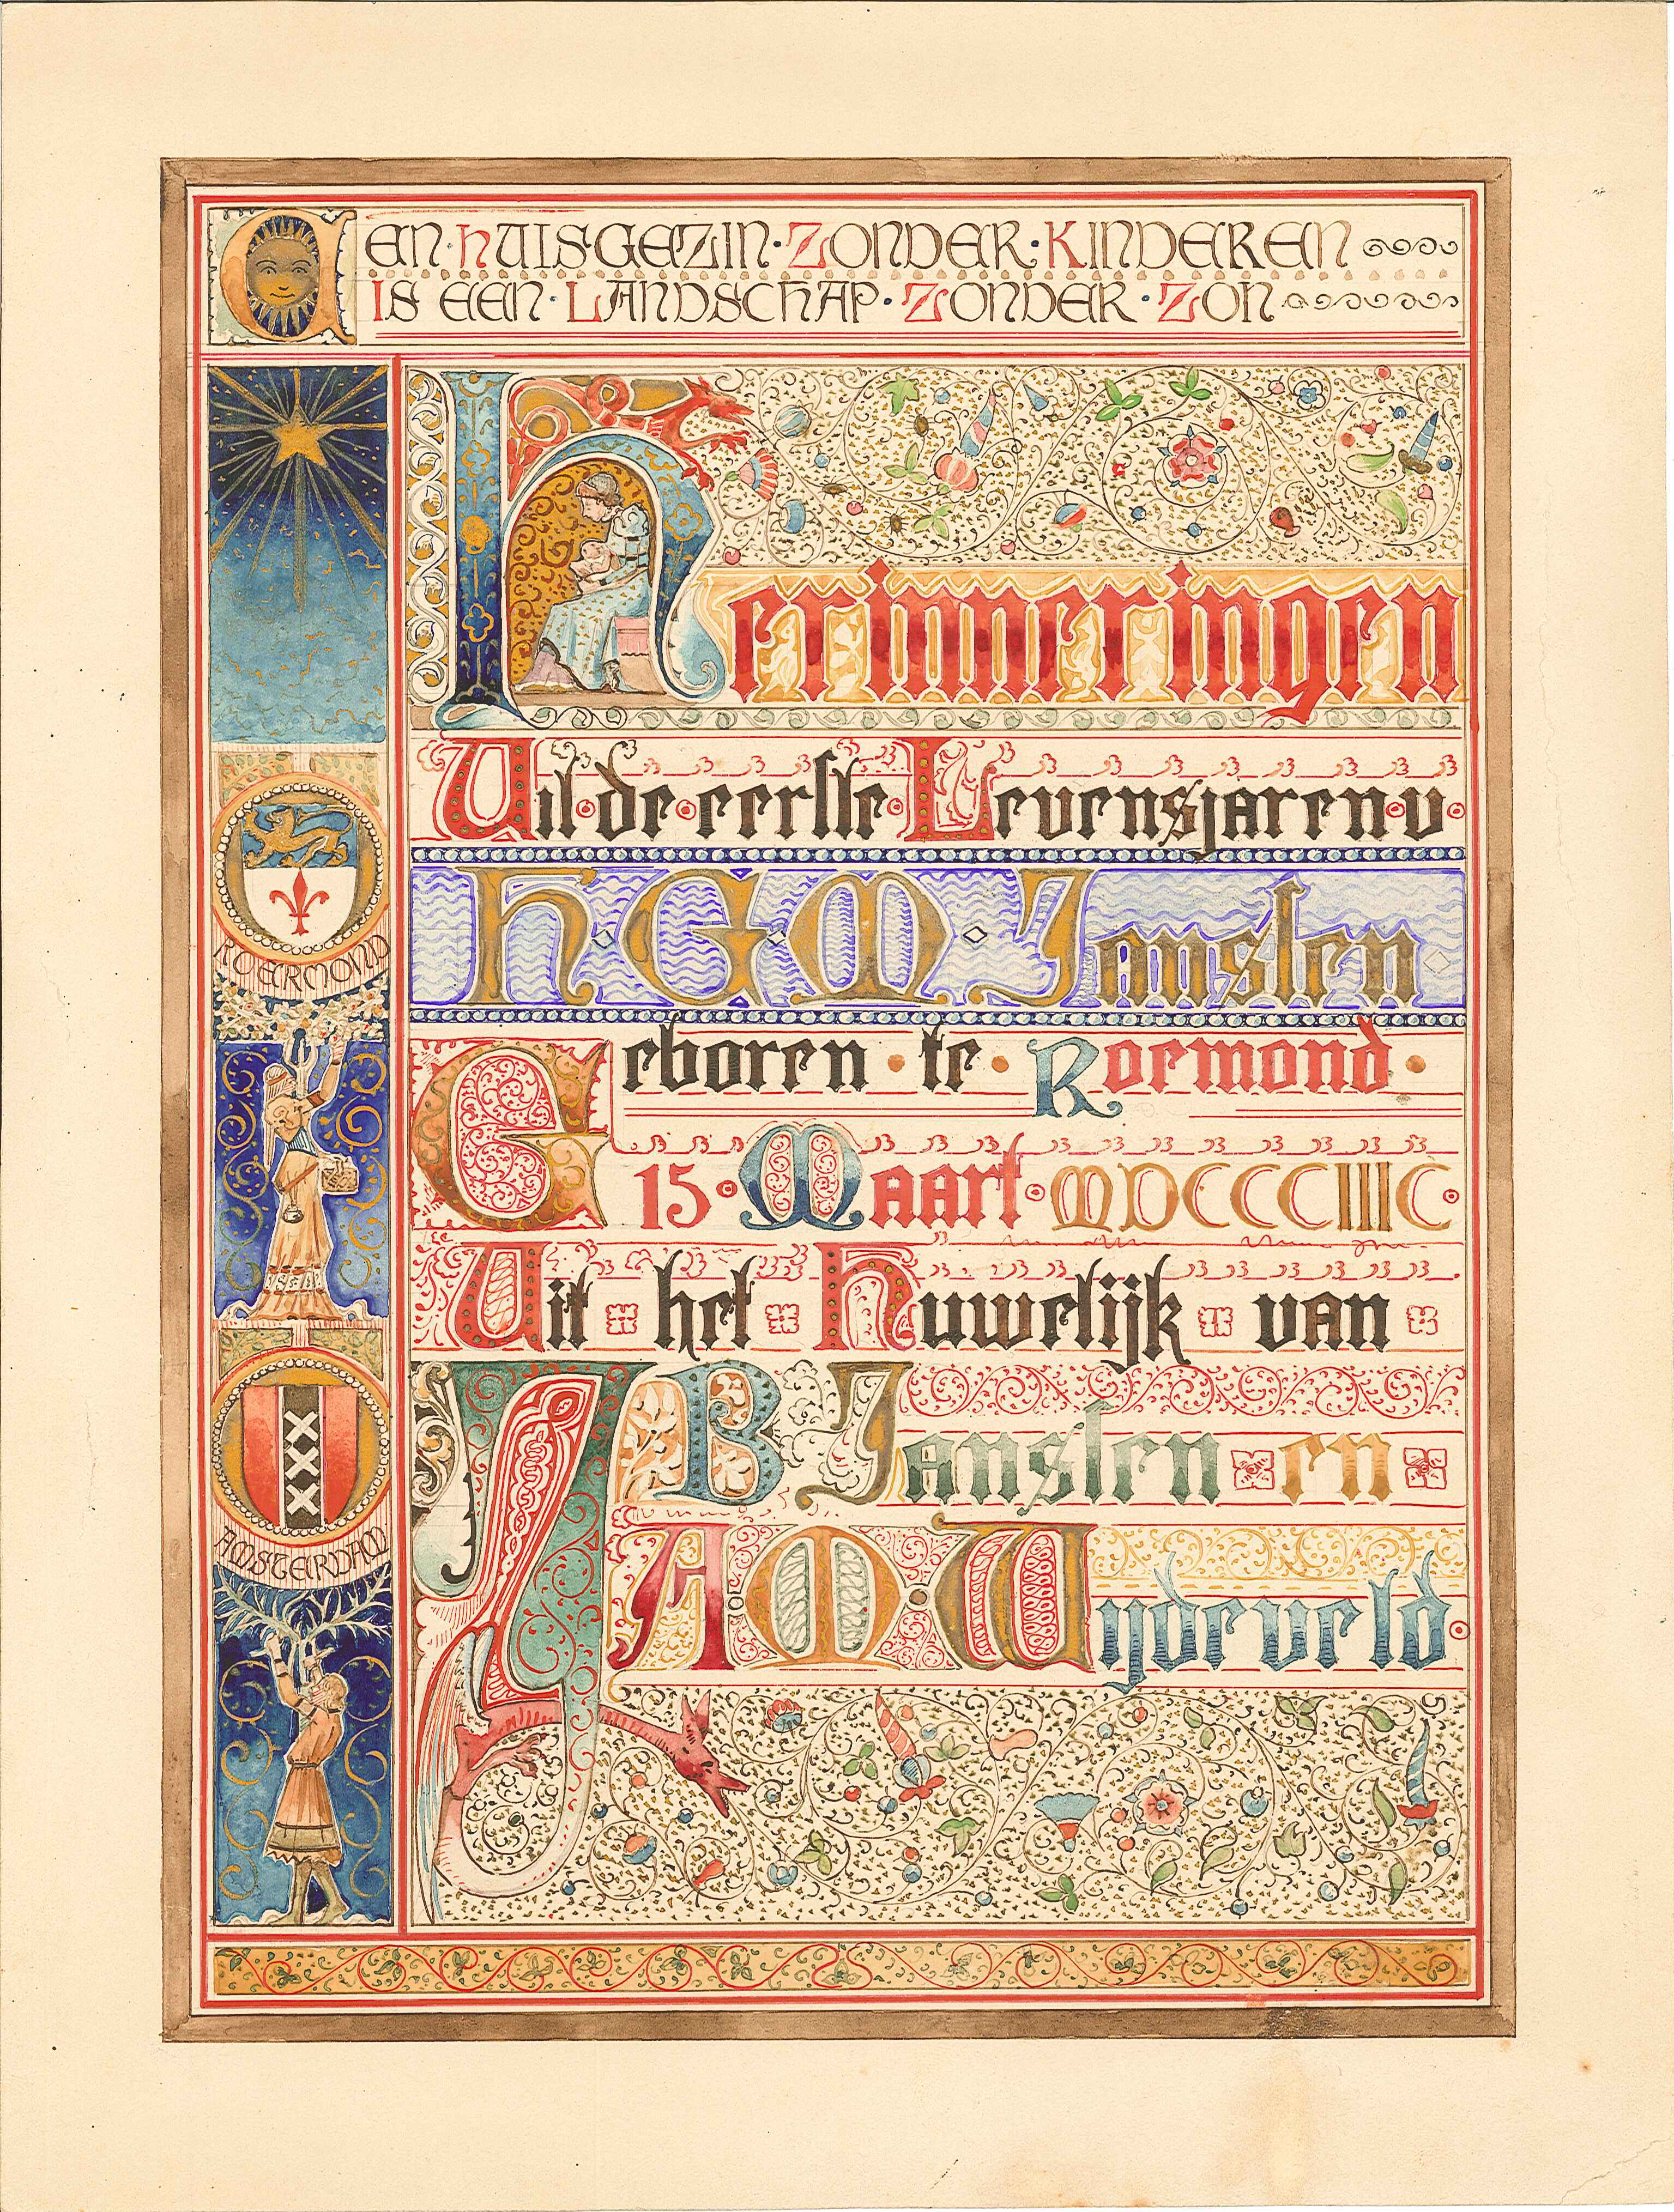 Een·Huisgezin·Zonder·Kinderen
Is een·Landschap·Zonder·Zon
Herinneringen
Uit·de·eerste·Levensjaren·v·
H·G·M·Jansſen
Geboren·te·Roemond·
15·Maart·MDCCCIIIC·
Uit het Huwelijk van
J B Jansſen en
A M·Wijdeveld·
ROERMOND
AMSTERDAM